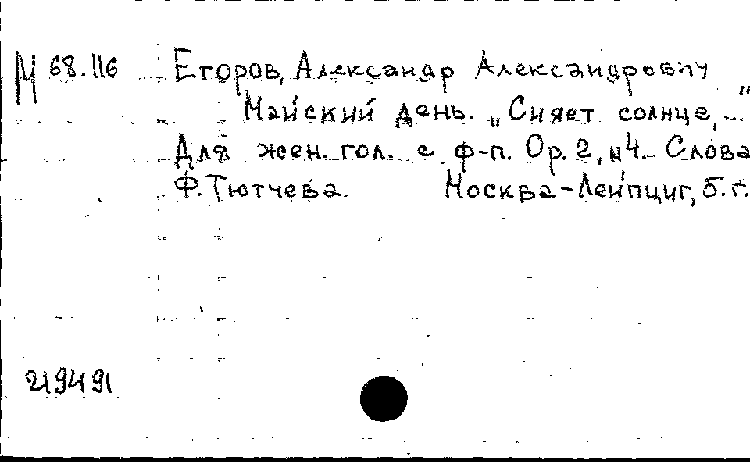 М 68.116 Егоров, Александр Александрович
Майский день. „Сияет солнце, ..."
Для жен. гол. с ф-п. Op. 2, №4. Слова
Ф. Тютчева. Москва-Лейпциг, б. г.
219491